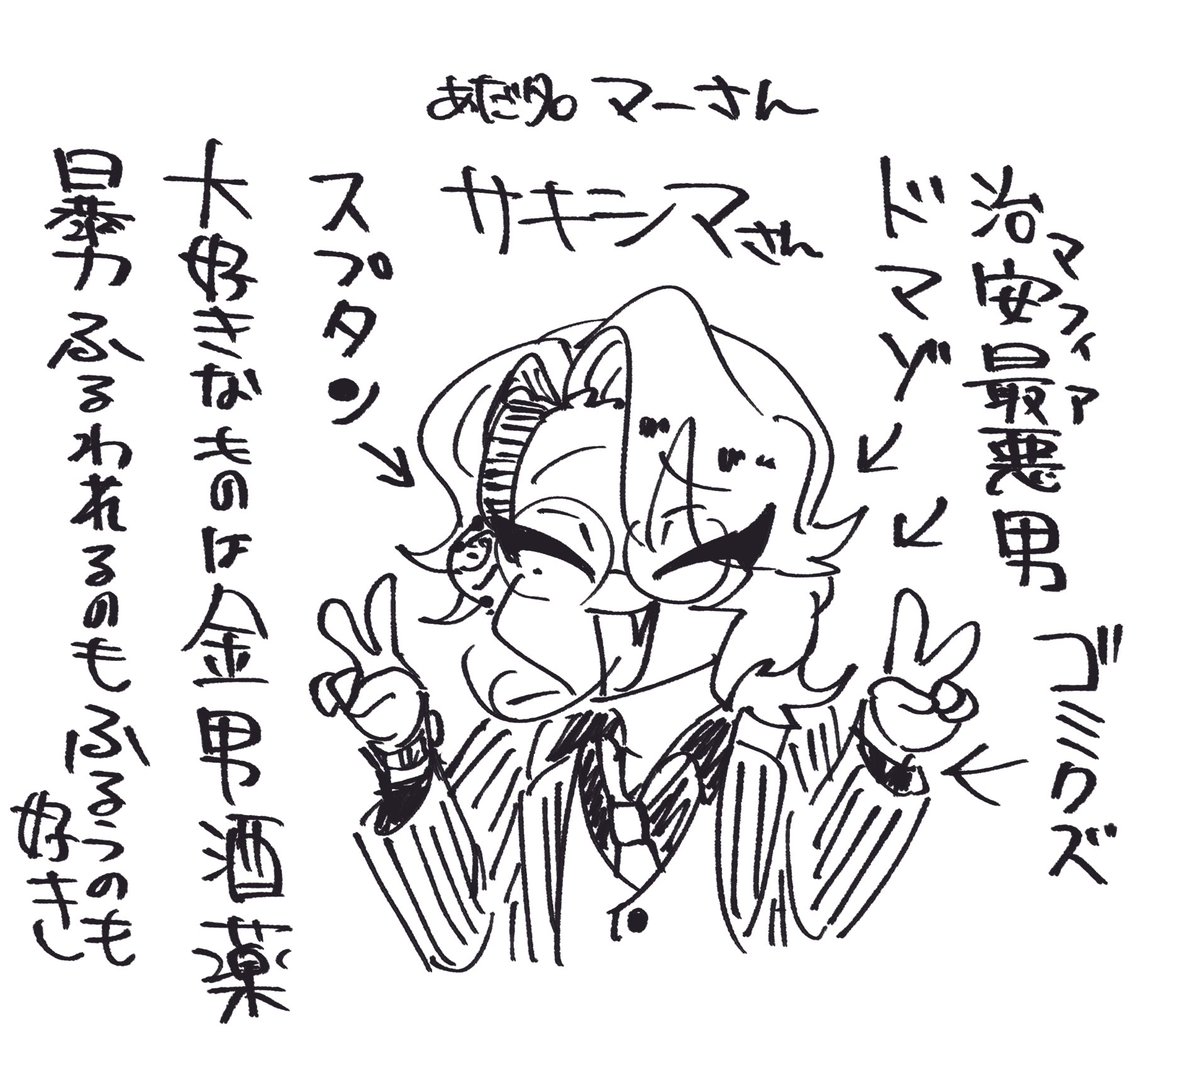 あだ名。マーさん
サキニマさん
治安最悪男
マフィア
ドマゾ
ゴミクズ
スプタン
大好きなものは金男酒薬
暴力ふるわれるのもふるうのも
好きし